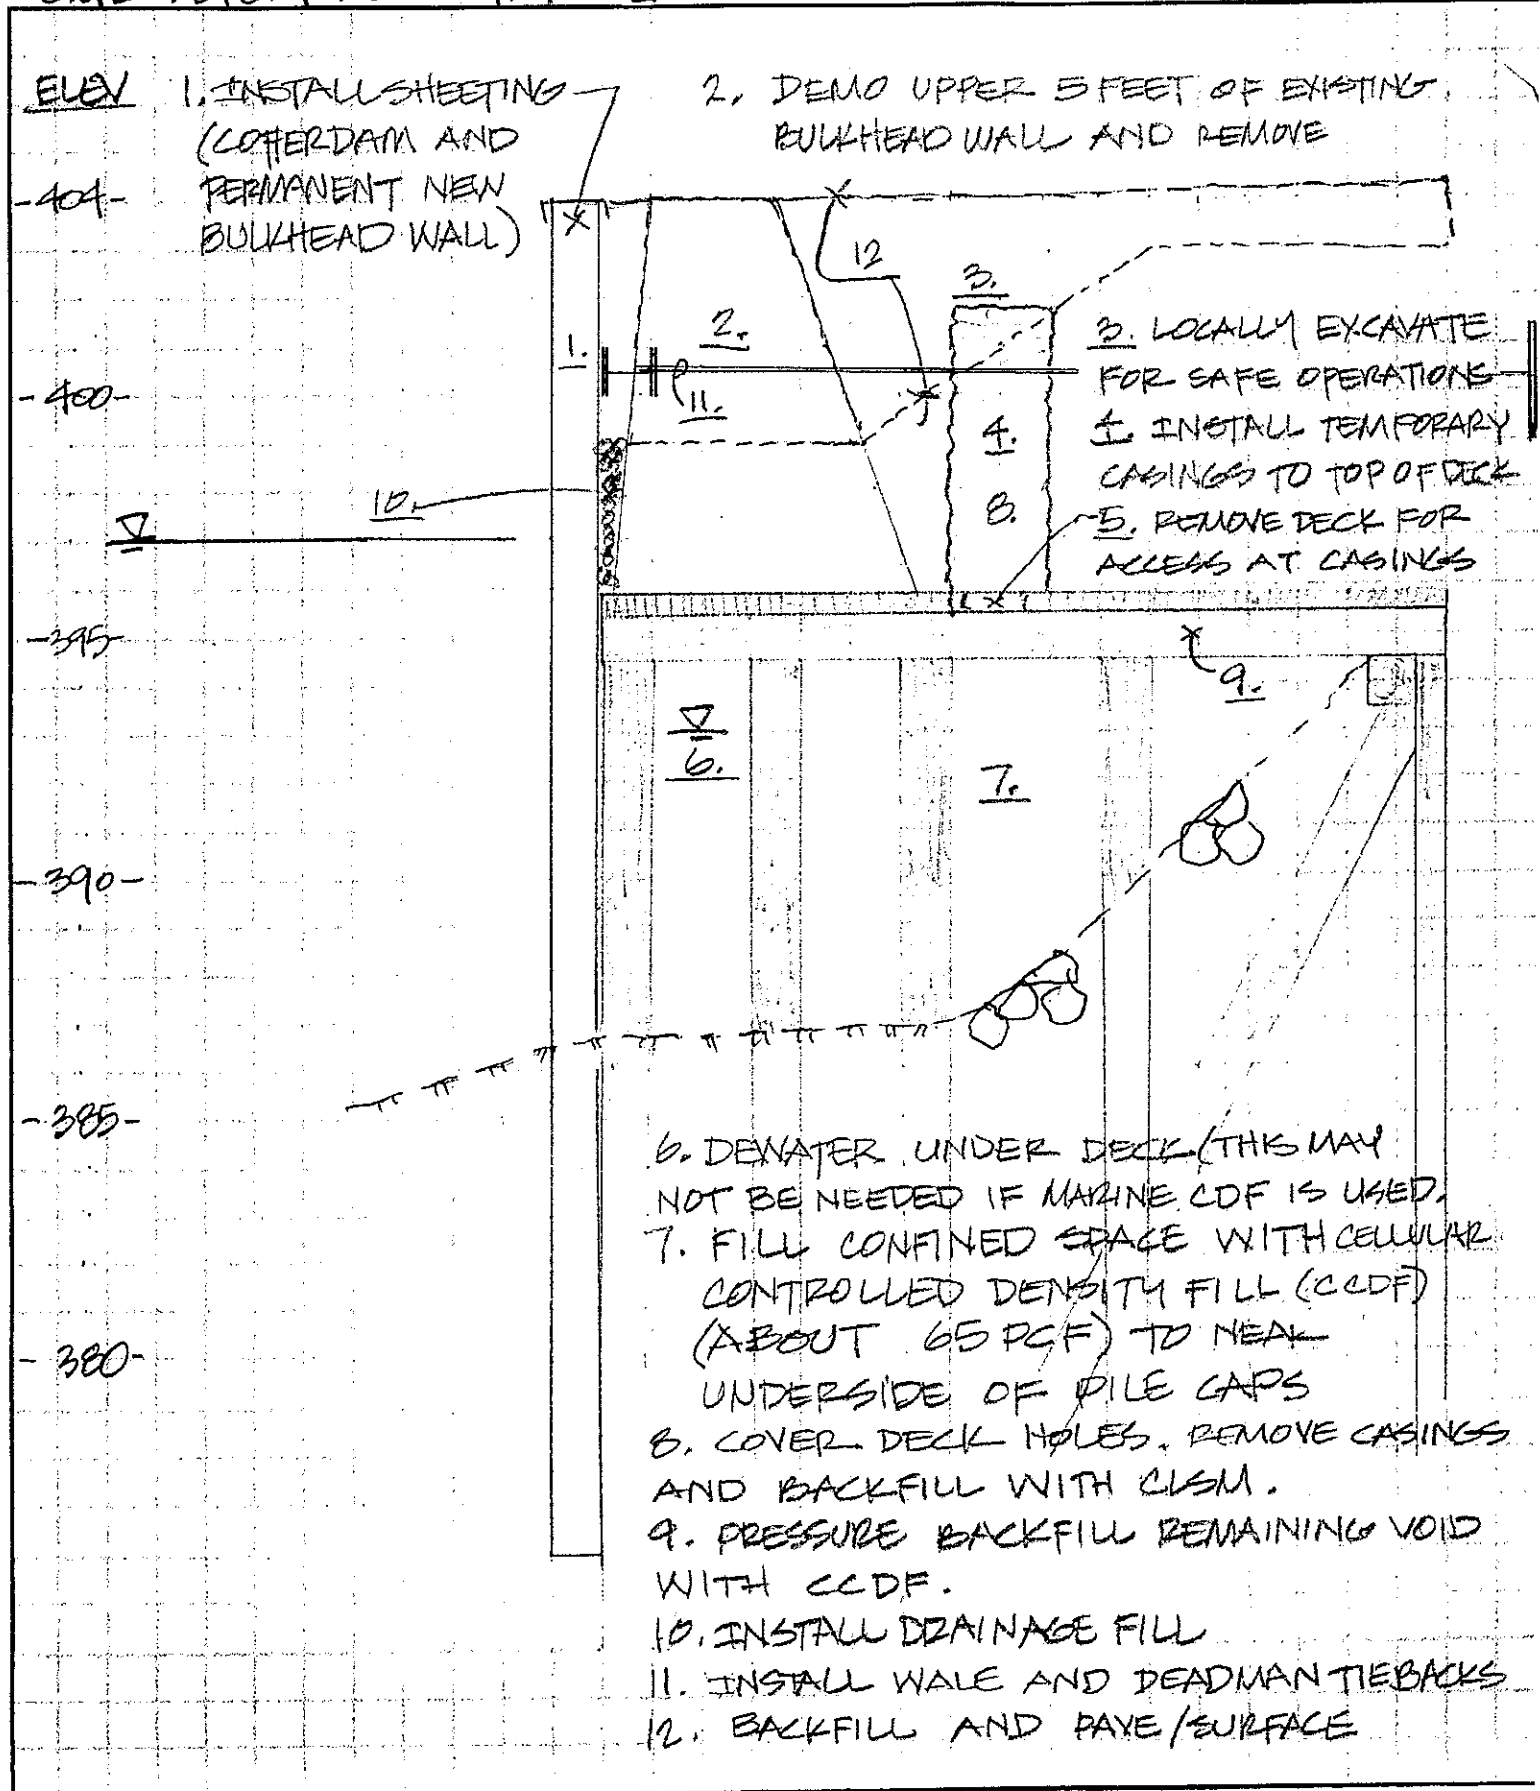 ELEV
1. INSTALL SHEETING
(COFFERDAM AND
PERMANENT NEW
BULKHEAD WALL)
2. DEMO UPPER 5 FEET OF EXISTING
BULKHEAD WALL AND REMOVE
-404-
12
3.
2.
1.
3. LOCALLY EXCAVATE
FOR SAFE OPERATIONS
-400-
11.
4.
4. INSTALL TEMPORARY
CASINGS TO TOP OF DECK
10.
8.
5. REMOVE DECK FOR
ACCESS AT CASINGS
-395-
9.
6.
7.
-390-
-385-
6. DEWATER UNDER DECK (THIS MAY
NOT BE NEEDED IF MARINE CDF IS USED.
7. FILL CONFINED SPACE WITH CELLULAR
CONTROLLED DENSITY FILL (CCDF)
(ABOUT 65 PCF) TO NEAR
UNDERSIDE OF PILE CAPS
-380-
8. COVER DECK HOLES. REMOVE CASINGS
AND BACKFILL WITH CLSM.
9. PRESSURE BACKFILL REMAINING VOID
WITH CCDF.
10. INSTALL DRAINAGE FILL
11. INSTALL WALE AND DEADMAN TIEBACKS
12. BACKFILL AND PAVE/SURFACE